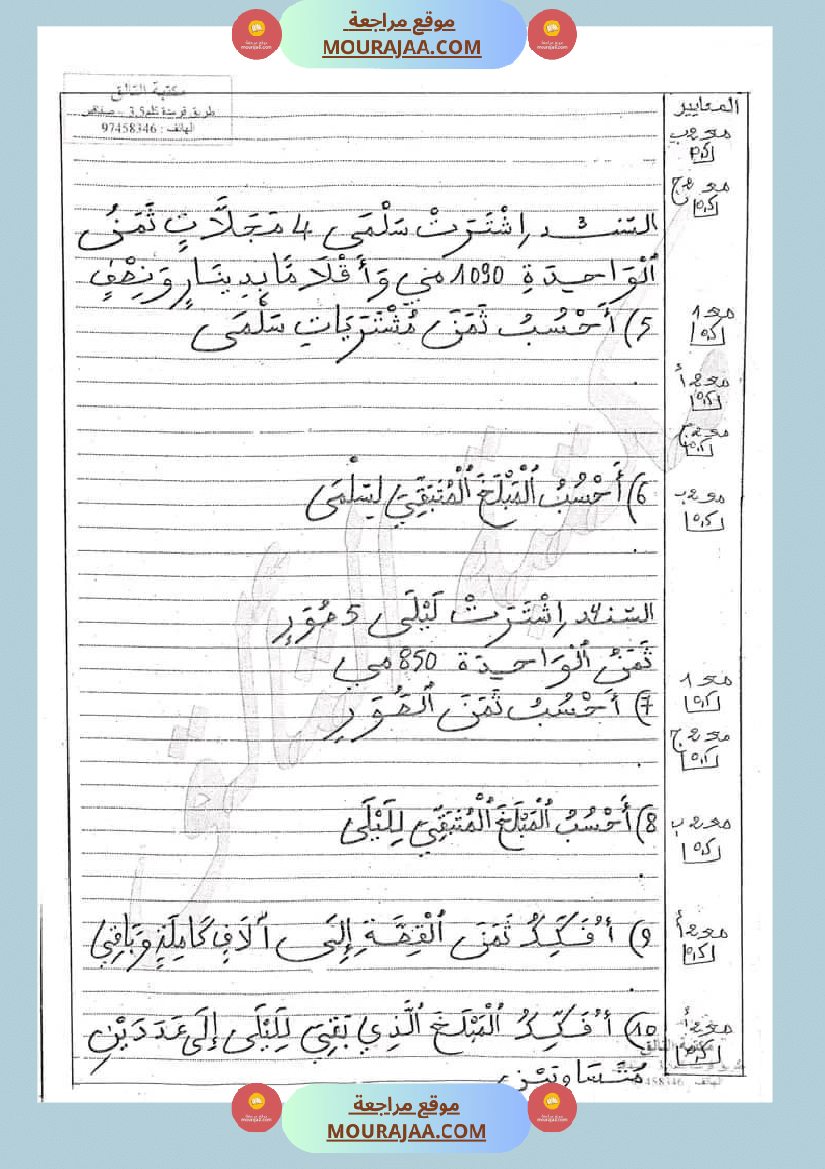 موقع مراجعة
MOURAJAA.COM
مكتبة التالق
طريق قرمدة كلم 7.5 - صفاقس
الهاتف : 97458346
المعايير
مع2ب
مع2ج
السّند3 اِشْتَرَتْ سَلْمَى 4 مَجَلَّاتٍ ثَمَنُ
ٱلْوَاحِدَةِ 1090 مي وَأَقْلَامًا بِدِينَارٍ وَنِصْفٍ
5) أَحْسُبُ ثَمَنَ مُشْتَرَيَاتِ سَلْمَى
مع1
مع2أ
مع2ج
6) أَحْسُبُ ٱلْمَبْلَغَ ٱلْمُتَبَقِّيَ لِسَلْمَى
مع2ب
السّند4 اِشْتَرَتْ لَيْلَى 5 صُوَرٍ
ثَمَنُ ٱلْوَاحِدَة 850 مي
7) أَحْسُبُ ثَمَنَ ٱلصُّوَرِ
مع1
مع2ج
8) أَحْسُبُ ٱلْمَبْلَغَ ٱلْمُتَبَقِّيَ لِلَيْلَى
مع2ب
9) أُفَكِّكُ ثَمَنَ ٱلْقِصَّةِ إِلَى ٱلَافٍ كَامِلَةٍ وَبَاقِي
مع2أ
10) أُفَكِّكُ ٱلْمَبْلَغَ ٱلَّذِي بَقِيَ لِلَيْلَى إِلَى عَدَدَيْنِ
مُتَسَاوِيَيْنِ
مع2أ
موقع مراجعة
MOURAJAA.COM